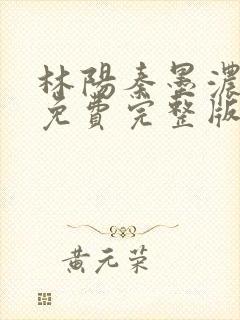 林陽秦墨濃
免費完整版
黃元荣